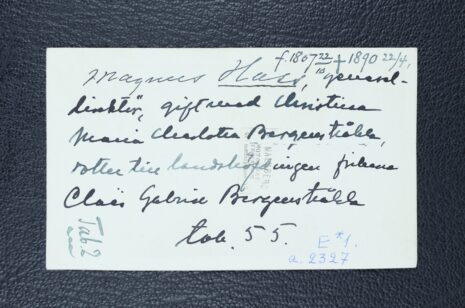 f. 1807 22/10 † 1890 22/4.
Magnus Hass, general-
direktör, gift med Christina
Maria Charlotta Bergenstråhle,
dotter till landshövdingen friherre
Claës Gabriel Bergenstråhle
tab. 55.
Tab 2
E*1.
a. 2327